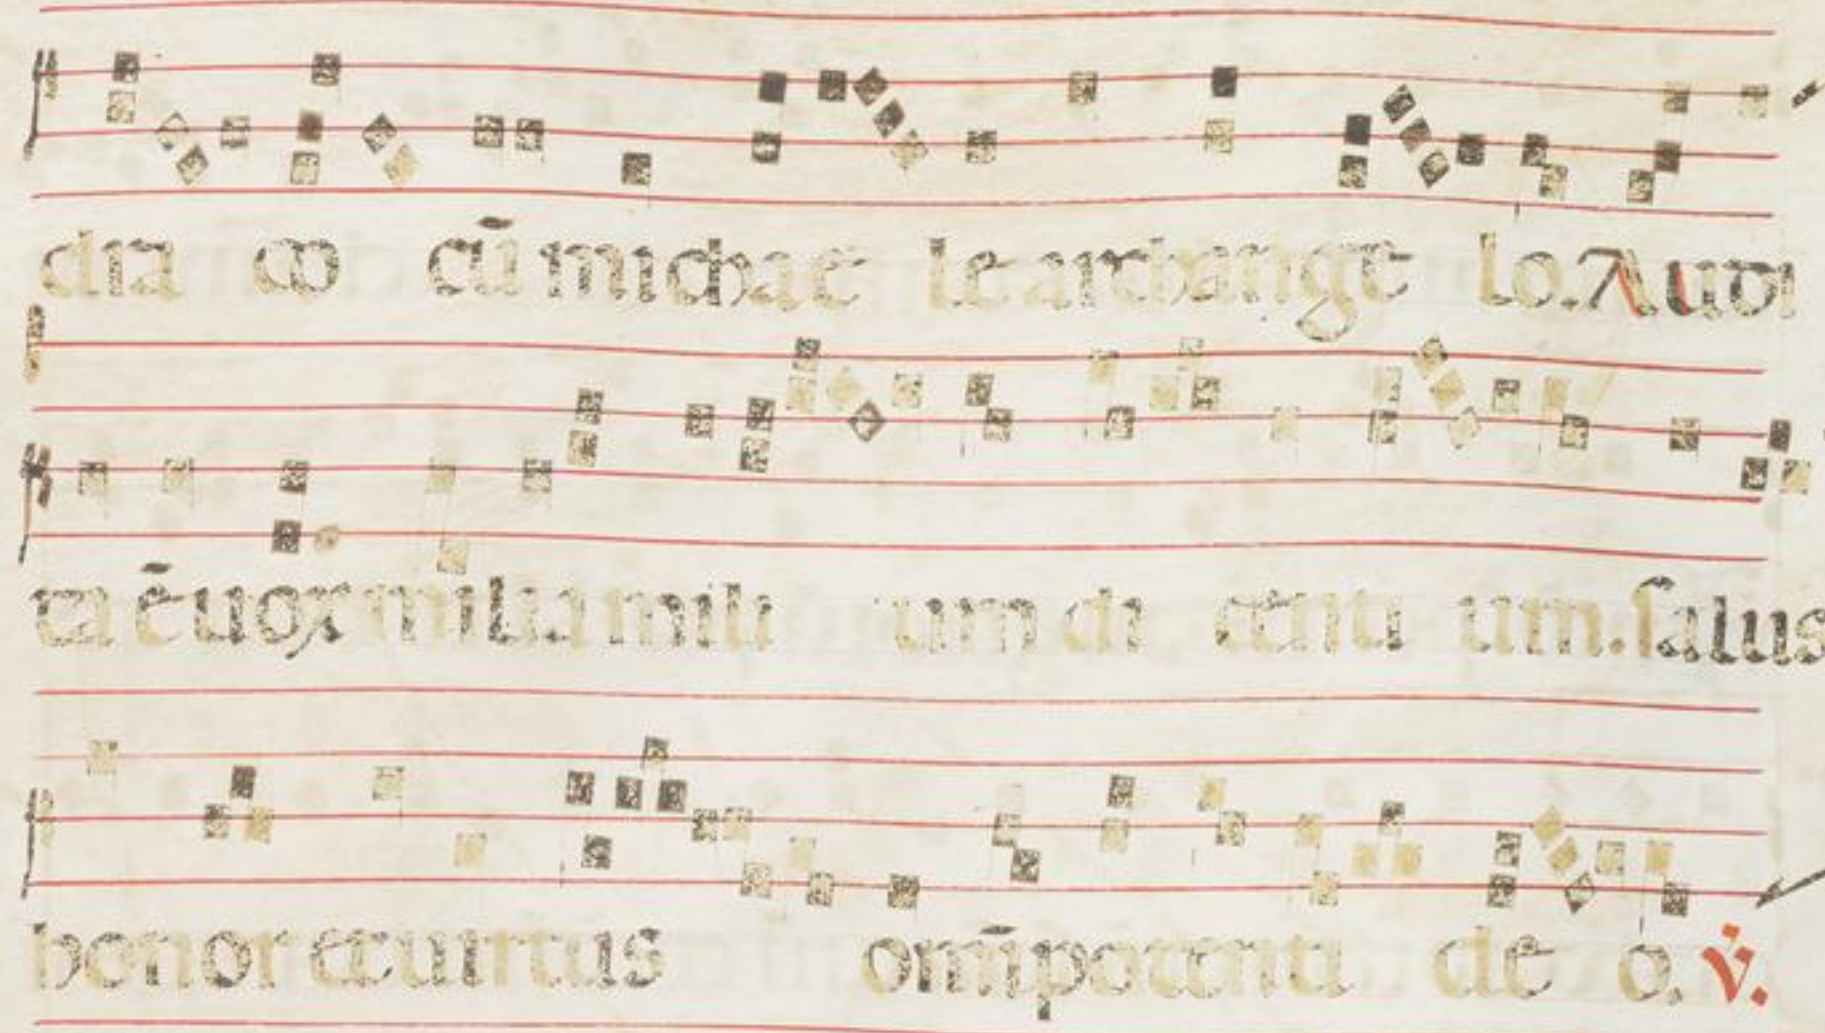 dra co cū michae le archange lo. Audi
ta ē uox milia mili um di centi um. salus
honor et uirtus om̄potenti de o. v̇.